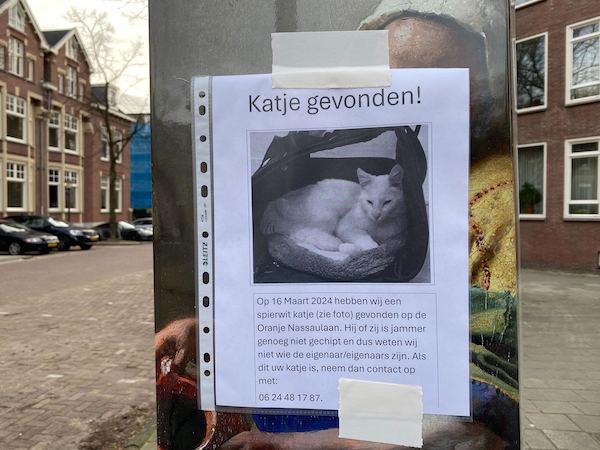 Katje gevonden!
Op 16 Maart 2024 hebben wij een
spierwit katje (zie foto) gevonden op de
Oranje Nassaulaan. Hij of zij is jammer
genoeg niet gechipt en dus weten wij
niet wie de eigenaar/eigenaars zijn. Als
dit uw katje is, neem dan contact op
met:
06 24 48 17 87.
LEITZ